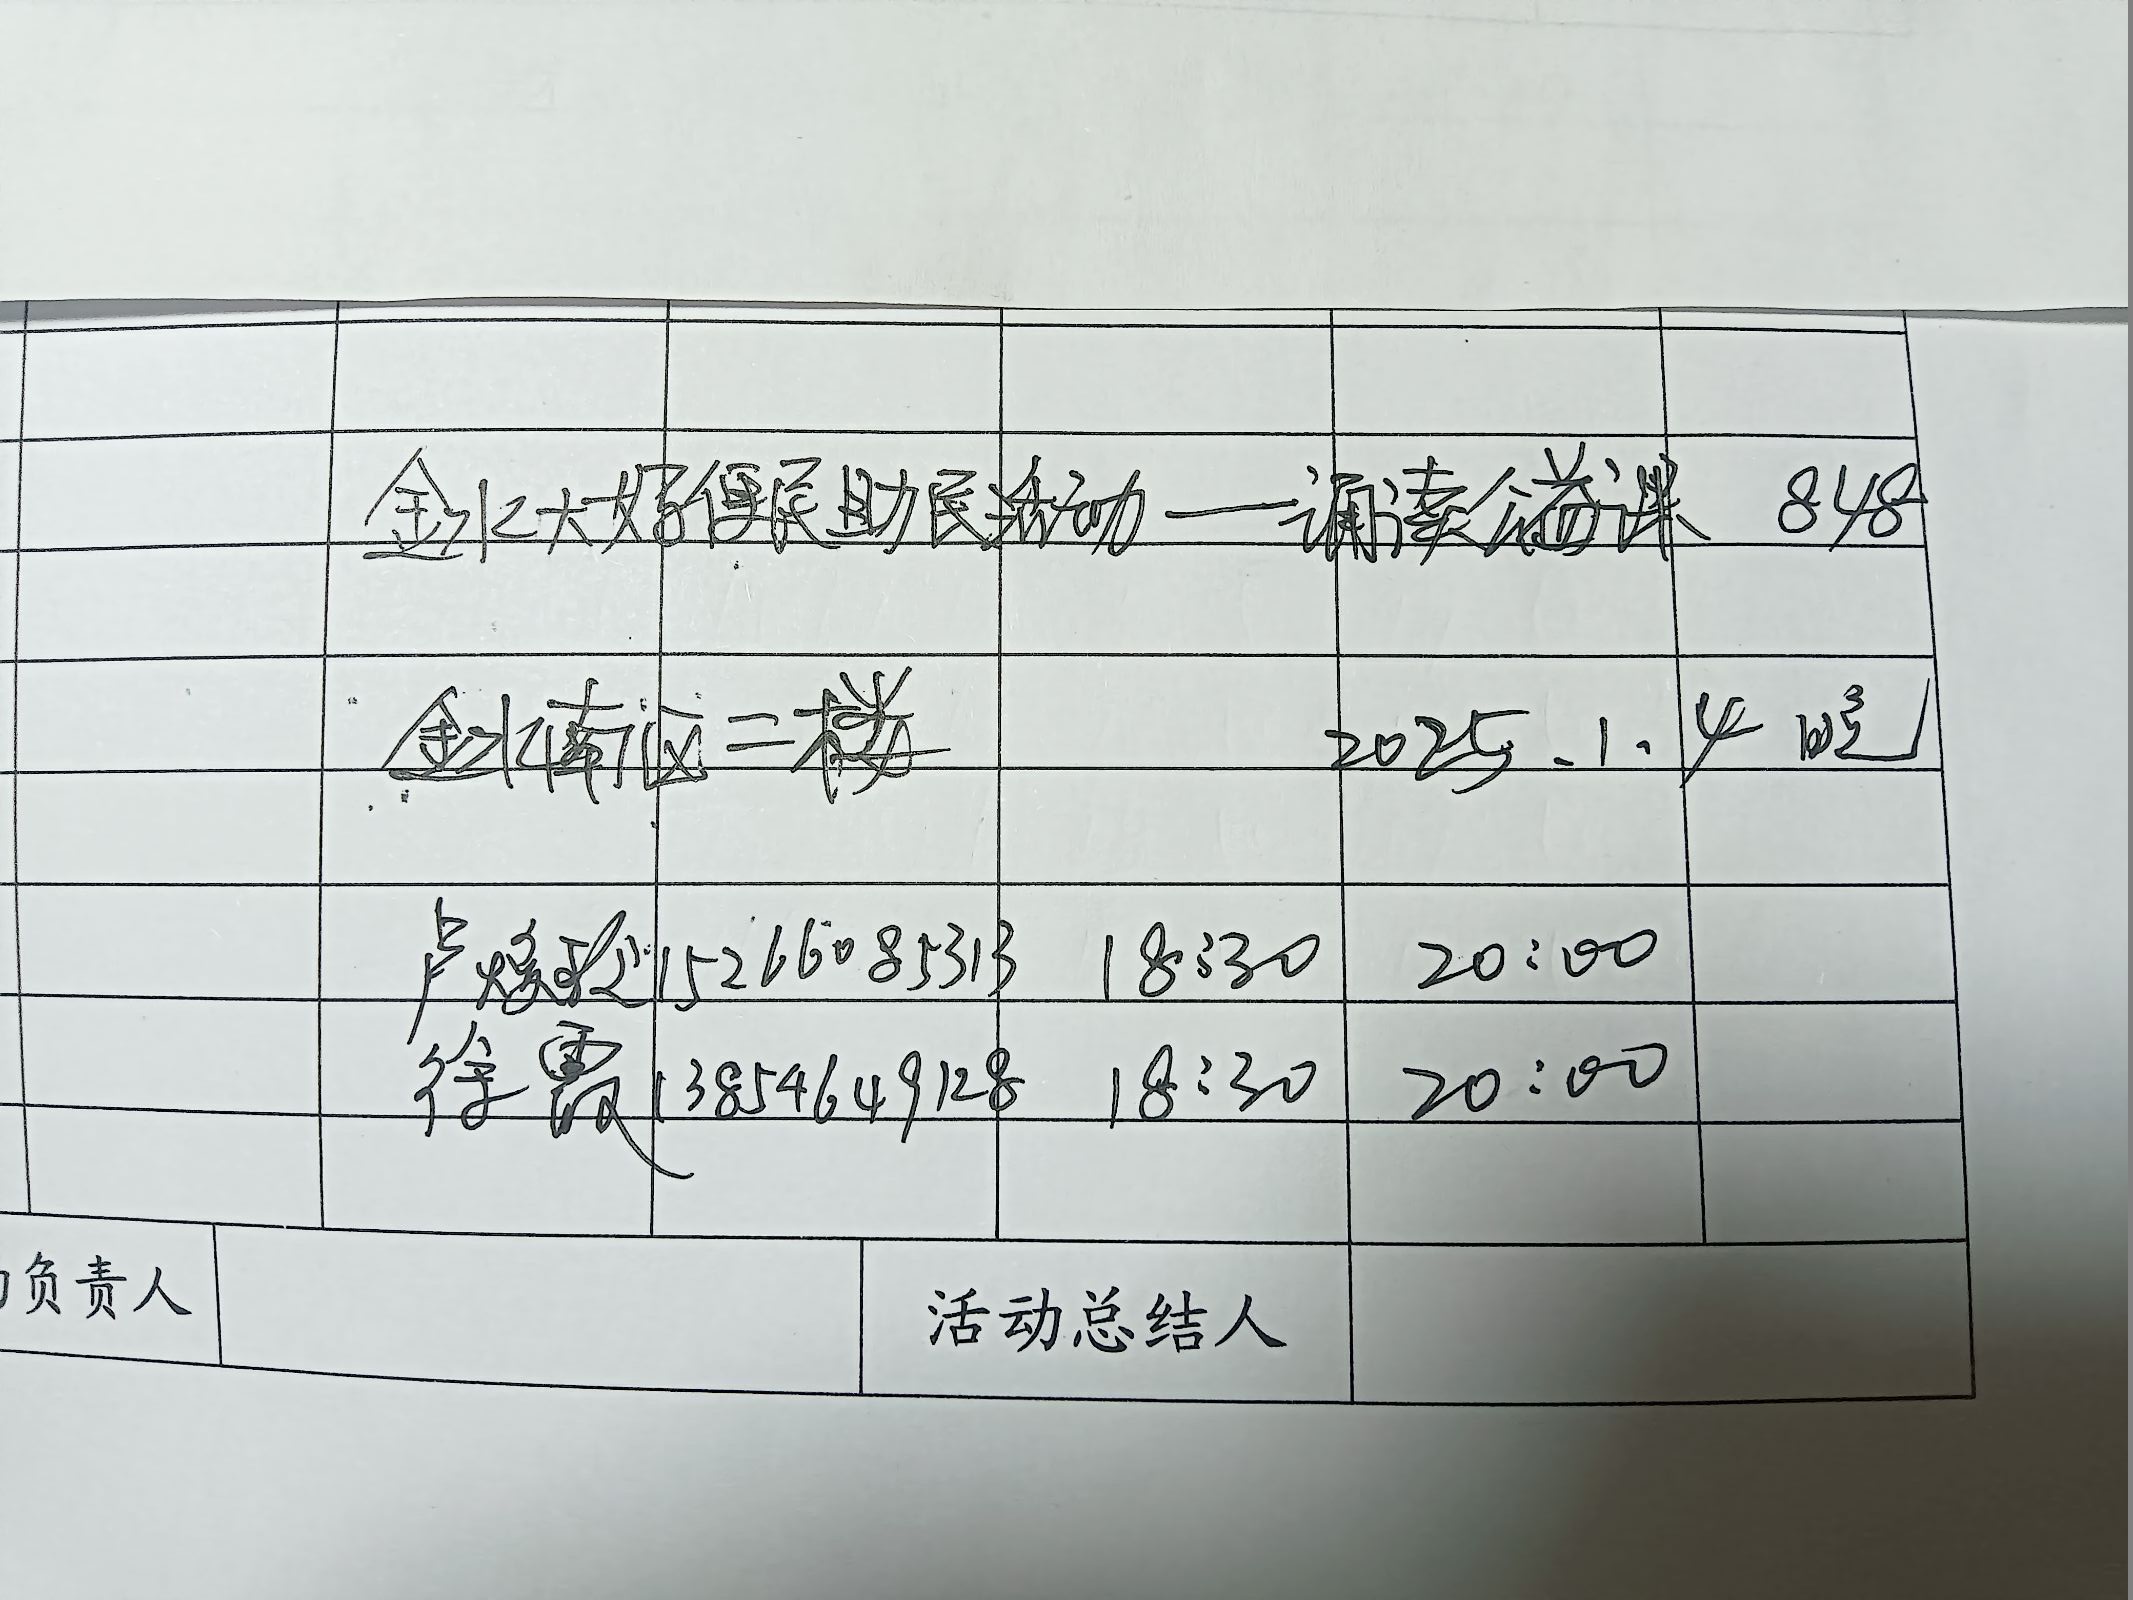 金水大好便民助民活动——诵读公益课 848
金水南区二楼 2025.1.4 晚
卢 15266085313 18:30 20:00
徐霞 13854649128 18:30 20:00
负责人 活动总结人